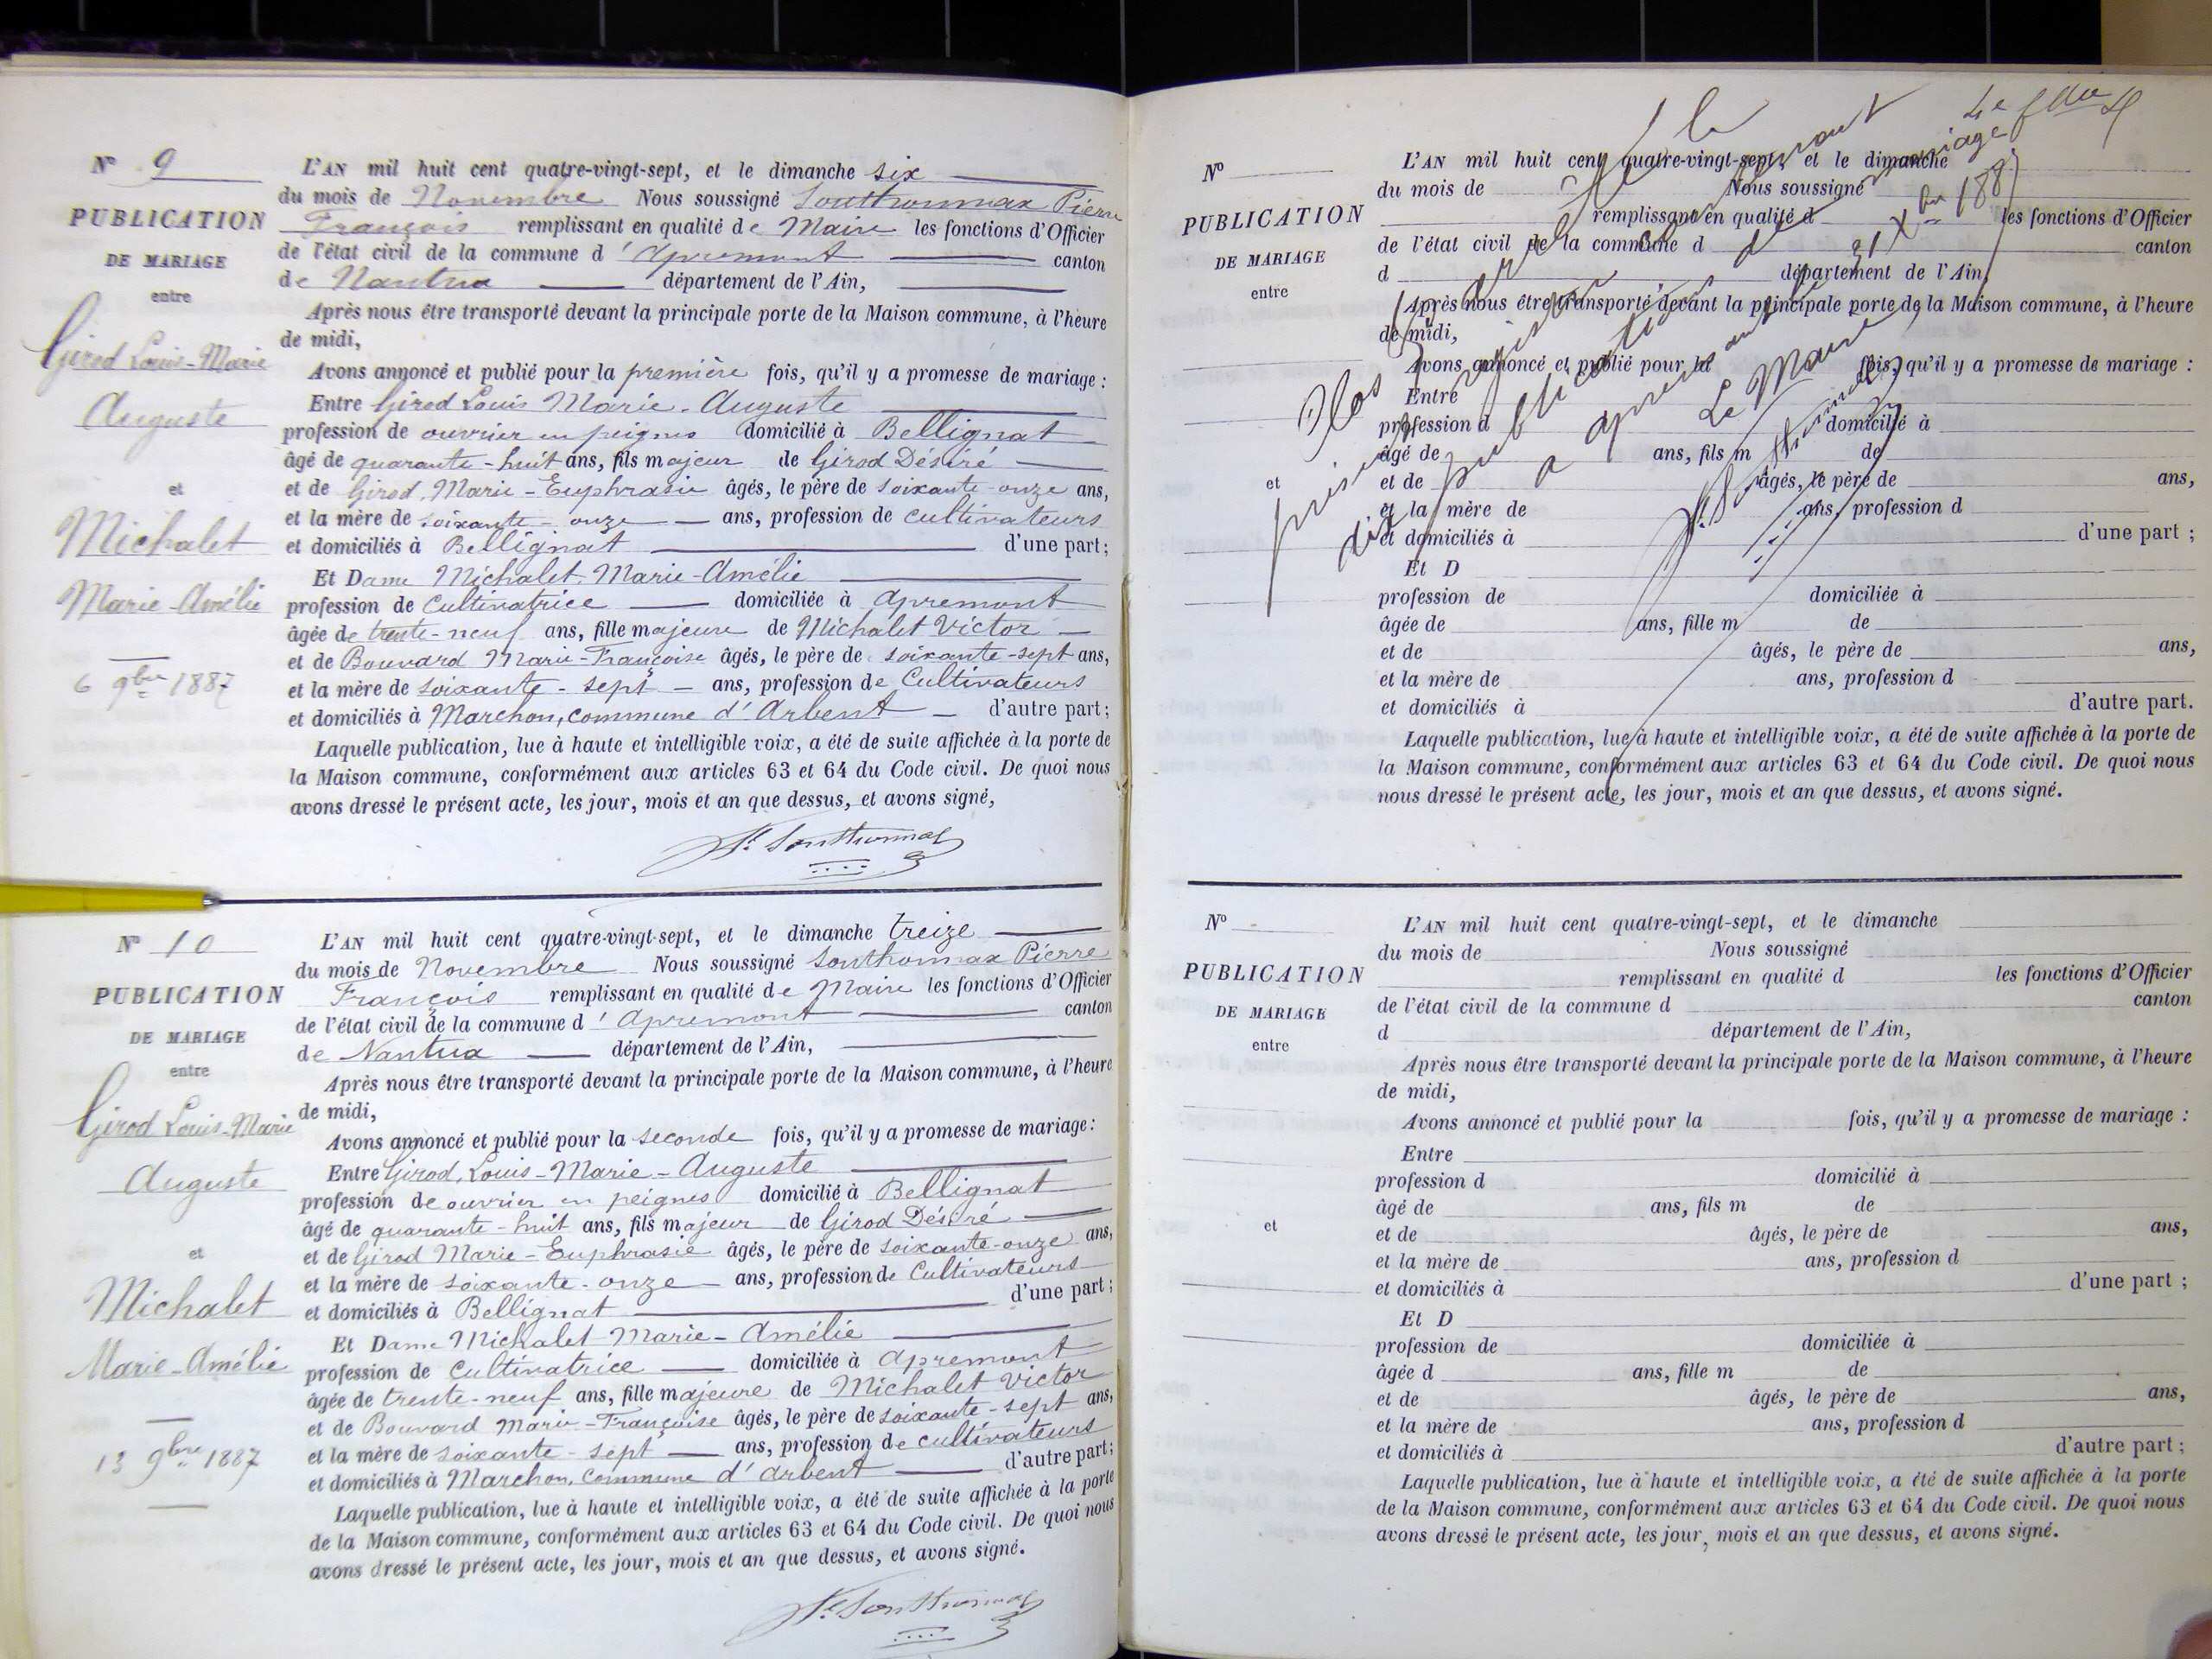 N° 9
PUBLICATION
DE MARIAGE
entre
Girod Louis-Marie
Auguste
et
Michalet
Marie-Amélie
6 9bre 1887
L'AN mil huit cent quatre-vingt-sept, et le dimanche six
du mois de Novembre Nous soussigné Southonnax Pierre
François remplissant en qualité de Maire les fonctions d'Officier
de l'état civil de la commune d'Apremont canton
de Nantua département de l'Ain,
Après nous être transporté devant la principale porte de la Maison commune, à l'heure
de midi,
Avons annoncé et publié pour la première fois, qu'il y a promesse de mariage :
Entre Girod Louis Marie-Auguste
profession de ouvrier en peignes domicilié à Bellignat
âgé de quarante-huit ans, fils majeur de Girod Désiré
et de Girod, Marie-Euphrasie âgés, le père de soixante-onze ans,
et la mère de soixante-onze ans, profession de cultivateurs
et domiciliés à Bellignat d'une part ;
Et Dame Michalet Marie-Amélie
profession de Cultivatrice domiciliée à Apremont
âgée de trente-neuf ans, fille majeure de Michalet Victor
et de Bouvard Marie-Françoise âgés, le père de soixante-sept ans,
et la mère de soixante-sept ans, profession de Cultivateurs
et domiciliés à Marchon, commune d'Arbent d'autre part ;
Laquelle publication, lue à haute et intelligible voix, a été de suite affichée à la porte de
la Maison commune, conformément aux articles 63 et 64 du Code civil. De quoi nous
avons dressé le présent acte, les jour, mois et an que dessus, et avons signé,
Southonnax
N° 10
PUBLICATION
DE MARIAGE
entre
Girod Louis-Marie
Auguste
et
Michalet
Marie-Amélie
13 9bre 1887
L'AN mil huit cent quatre-vingt-sept, et le dimanche treize
du mois de Novembre Nous soussigné Southonnax Pierre
François remplissant en qualité de Maire les fonctions d'Officier
de l'état civil de la commune d'Apremont canton
de Nantua département de l'Ain,
Après nous être transporté devant la principale porte de la Maison commune, à l'heure
de midi,
Avons annoncé et publié pour la seconde fois, qu'il y a promesse de mariage :
Entre Girod, Louis-Marie-Auguste
profession de ouvrier en peignes domicilié à Bellignat
âgé de quarante-huit ans, fils majeur de Girod Désiré
et de Girod Marie-Euphrasie âgés, le père de soixante-onze ans,
et la mère de soixante-onze ans, profession de Cultivateurs
et domiciliés à Bellignat d'une part ;
Et Dame Michalet Marie-Amélie
profession de Cultivatrice domiciliée à Apremont
âgée de trente-neuf ans, fille majeure de Michalet Victor
et de Bouvard Marie-Françoise âgés, le père de soixante-sept ans,
et la mère de soixante-sept ans, profession de cultivateurs
et domiciliés à Marchon, commune d'Arbent d'autre part ;
Laquelle publication, lue à haute et intelligible voix, a été de suite affichée à la porte
de la Maison commune, conformément aux articles 63 et 64 du Code civil. De quoi nous
avons dressé le présent acte, les jour, mois et an que dessus, et avons signé.
Southonnax
N°
PUBLICATION
DE MARIAGE
entre
et
L'AN mil huit cent quatre-vingt-sept, et le dimanche
du mois de Nous soussigné
remplissant en qualité d les fonctions d'Officier
de l'état civil de la commune d canton
d département de l'Ain,
Après nous être transporté devant la principale porte de la Maison commune, à l'heure
de midi,
Avons annoncé et publié pour la fois, qu'il y a promesse de mariage :
Entre
profession d domicilié à
âgé de ans, fils m de
et de âgés, le père de ans,
et la mère de ans, profession d
et domiciliés à d'une part ;
Et D
profession de domiciliée à
âgée de ans, fille m de
et de âgés, le père de ans,
et la mère de ans, profession d
et domiciliés à d'autre part.
Laquelle publication, lue à haute et intelligible voix, a été de suite affichée à la porte de
la Maison commune, conformément aux articles 63 et 64 du Code civil. De quoi nous
nous dressé le présent acte, les jour, mois et an que dessus, et avons signé.
Clos
le
présent registre
publications de mariage
à Apremont le 31 Xbre 1887
Le Maire
Southonnax
N°
PUBLICATION
DE MARIAGE
entre
et
L'AN mil huit cent quatre-vingt-sept, et le dimanche
du mois de Nous soussigné
remplissant en qualité d les fonctions d'Officier
de l'état civil de la commune d canton
d département de l'Ain,
Après nous être transporté devant la principale porte de la Maison commune, à l'heure
de midi,
Avons annoncé et publié pour la fois, qu'il y a promesse de mariage :
Entre
profession d domicilié à
âgé de ans, fils m de
et de âgés, le père de ans,
et la mère de ans, profession d
et domiciliés à d'une part ;
Et D
profession de domiciliée à
âgée d ans, fille m de
et de âgés, le père de ans,
et la mère de ans, profession d
et domiciliés à d'autre part ;
Laquelle publication, lue à haute et intelligible voix, a été de suite affichée à la porte
de la Maison commune, conformément aux articles 63 et 64 du Code civil. De quoi nous
avons dressé le présent acte, les jour, mois et an que dessus, et avons signé.